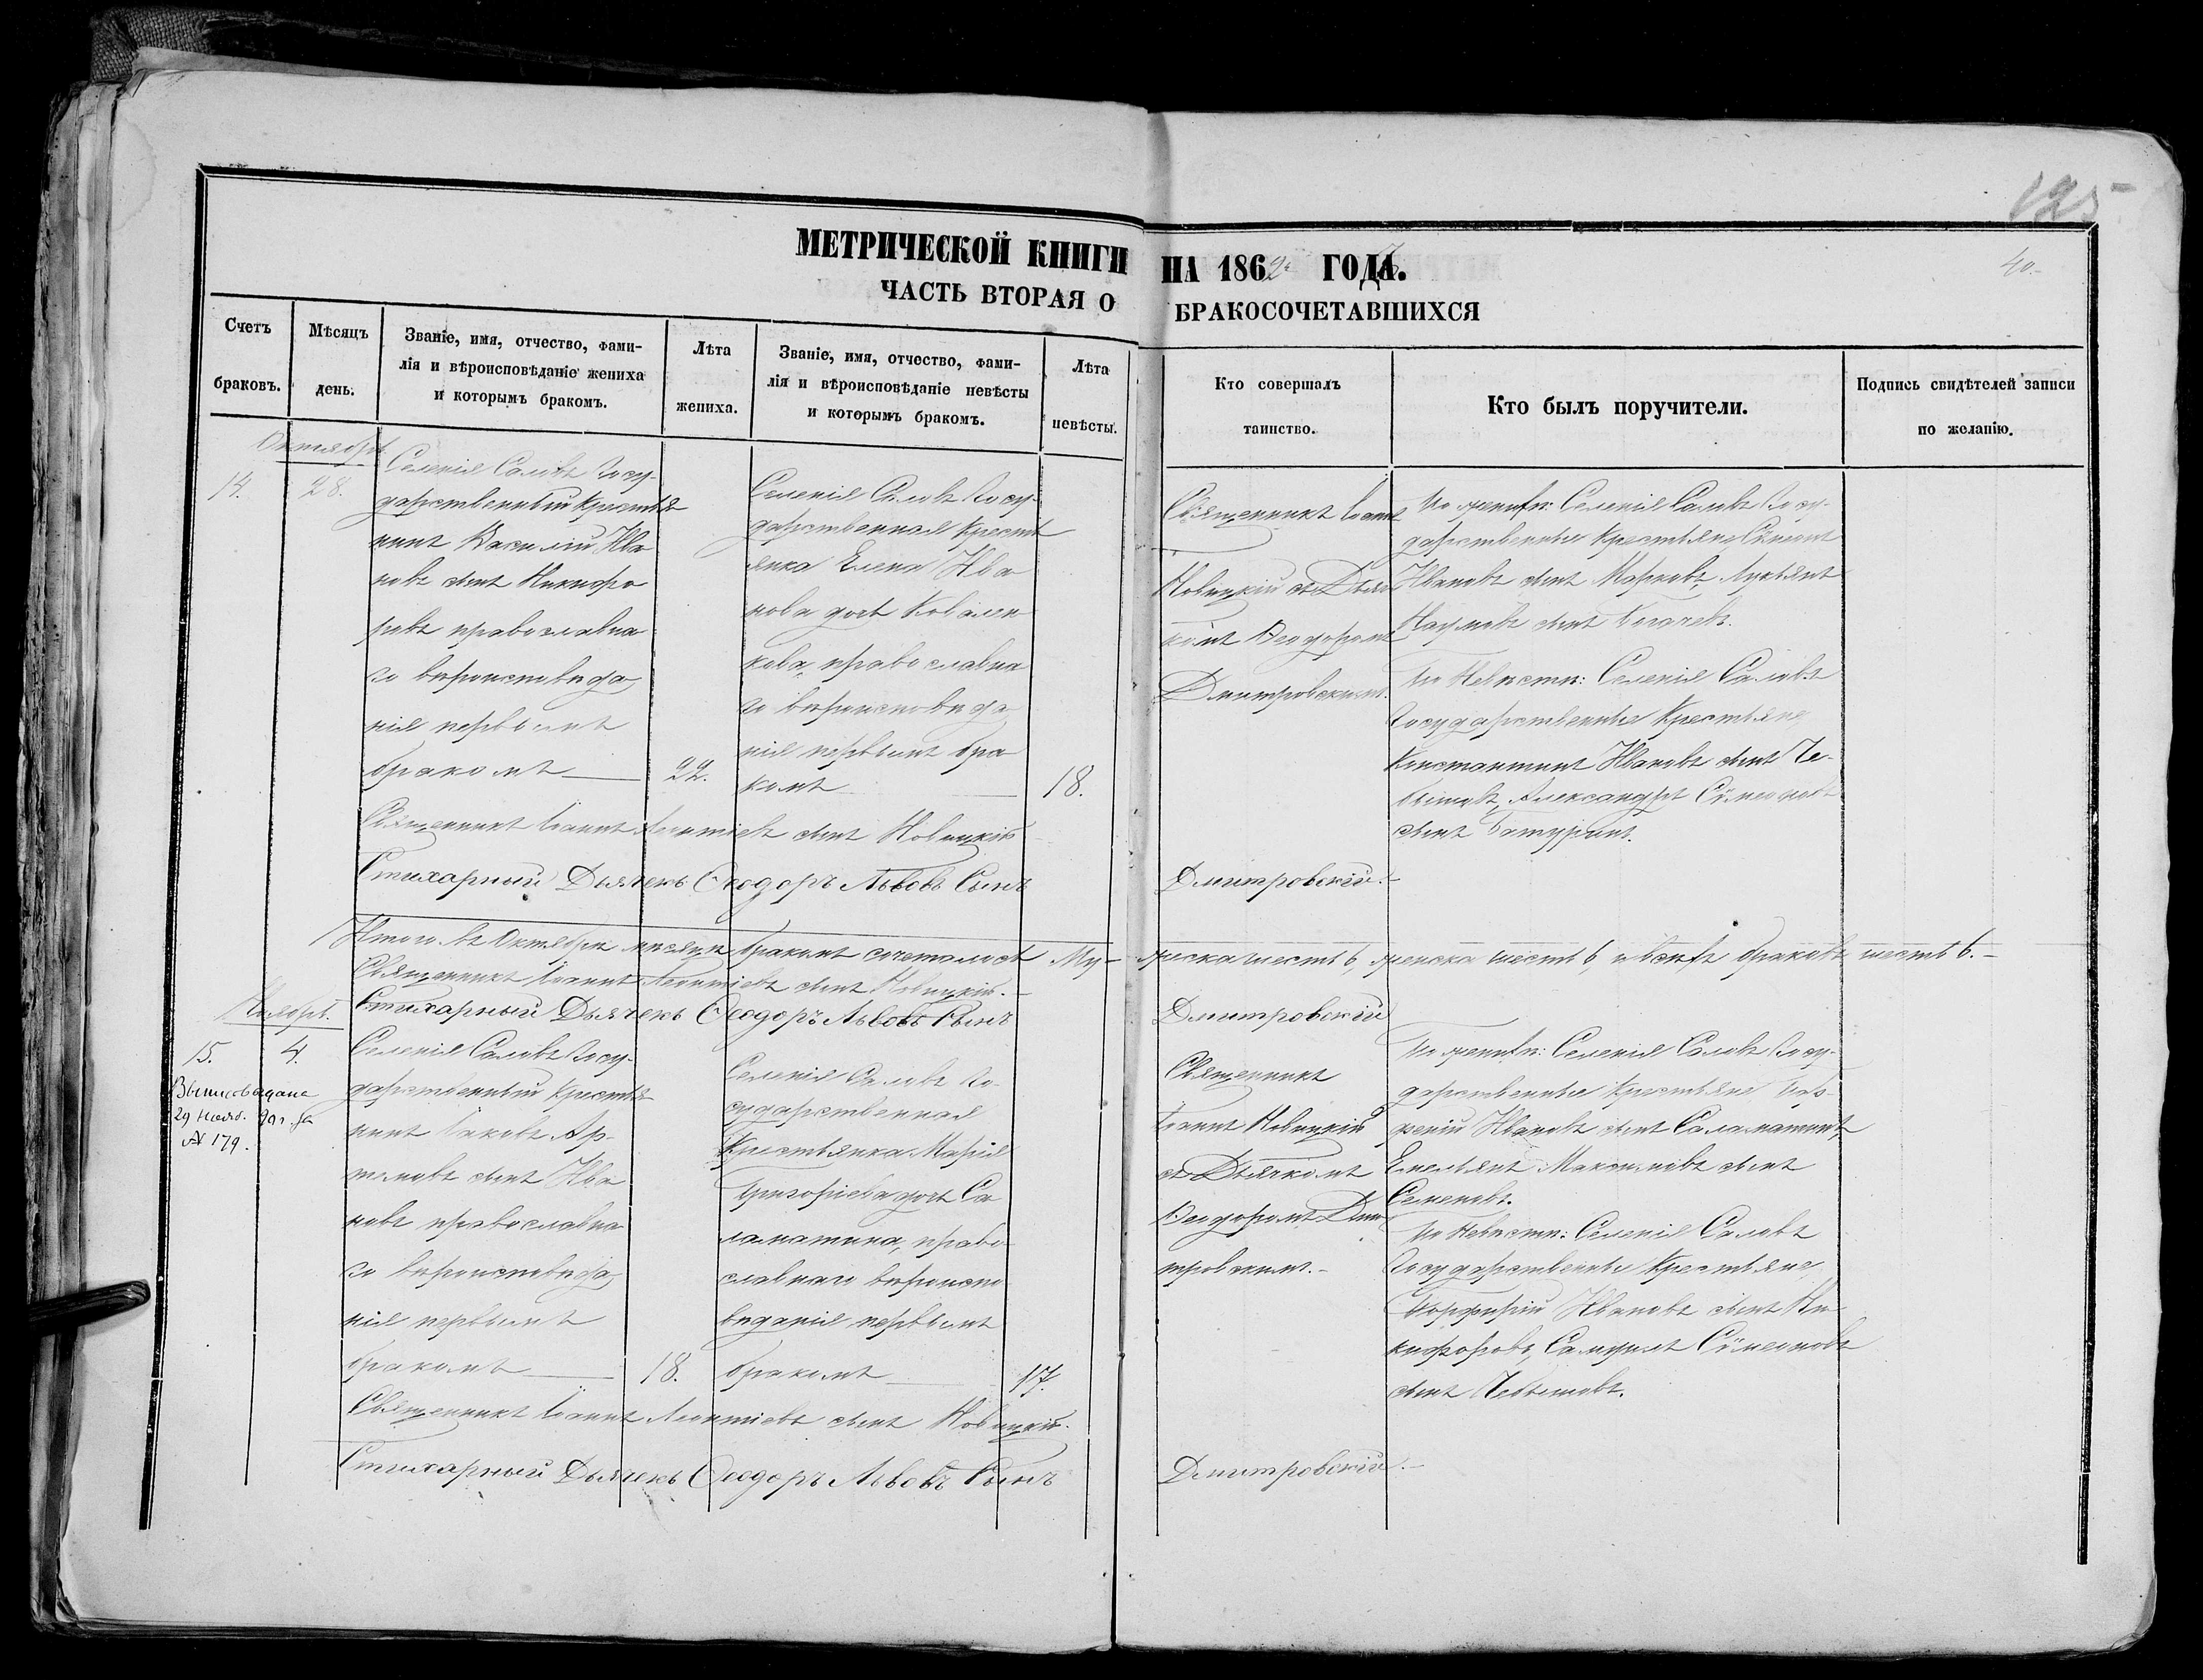 125
40.
МЕТРИЧЕСКОЙ КНИГИ НА 1862 ГОДА.
ЧАСТЬ ВТОРАЯ О БРАКОСОЧЕТАВШИХСЯ
Счетъ
браковъ.
Мѣсяцъ
день.
Званіе, имя, отчество, фами-
лія и вѣроисповѣданіе жениха
и которымъ бракомъ.
Лѣта
жениха.
Званіе, имя, отчество, фами-
лія и вѣроисповѣданіе невѣсты
и которымъ бракомъ.
Лѣта
невѣсты.
Кто совершалъ
таинство.
Кто былъ поручители.
Подпись свидѣтелей записи
по желанію.
Октябрь
14.
28.
Селенія Саловъ Госу-
дарственный Крестья
нинъ Василій Ива
новъ сынъ Никифо
ровъ православна
го вѣроисповѣда
нія первымъ
бракомъ
22.
Селенія Саловъ Госу-
дарственная Кресть
янка Елена Ива
нова дочь Ковален
кова, православна
го вѣроисповѣда
нія первымъ бра
комъ
18.
Священникъ Іоаннъ
Новицкій съ Дьяч
комъ Ѳеодоромъ
Дмитровскимъ.
По женихѣ: Селенія Саловъ Госу-
дарственные Крестьяне Сѵмеонъ
Ивановъ сынъ Марковъ, Лукьянъ
Наумовъ сынъ Богачевъ.
По Невѣстѣ: Селенія Саловъ
Государственные Крестьяне
Константинъ Ивановъ сынъ Че-
бышовъ, Александръ Сѵмеоновъ
сынъ Батуринъ.
Священникъ Іоаннъ Леонтіевъ сынъ Новицкій
Стихарный Дьячекъ Ѳеодоръ Львовъ Сынъ Дмитровскій.
Итого въ Октябрѣ мѣсяцѣ бракомъ сочеталось Му- жеска шесть 6, женска шесть 6, и всѣхъ браковъ шесть 6.
Священникъ Іоаннъ Леонтіевъ сынъ Новицкій.
Стихарный Дьячекъ Ѳеодоръ Львовъ Сынъ Дмитровскій
Ноябрь.
15.
4.
Выписъ выдана
29 нояб. 901. за
№ 179.
Селенія Саловъ Госу-
дарственный Крестья-
нинъ Іаковъ Ар-
темовъ сынъ Ива
новъ православна
го вѣроисповѣда
нія первымъ
бракомъ
18.
Селенія Саловъ Го-
сударственная
Крестьянка Марія
Григоріева дочь Са
ламатина, право
славнаго вѣроиспо
вѣданія первымъ
бракомъ
17.
Священникъ
Іоаннъ Новицкій
съ Дьячкомъ
Ѳеодоромъ Дми
тровскимъ.
По женихѣ: Селенія Саловъ Госу-
дарственные Крестьяне Пор-
фирій Ивановъ сынъ Саламатинъ,
Емельянъ Максимовъ сынъ
Семеновъ.
По Невѣстѣ: Селенія Саловъ
Государственные Крестьяне
Порфирій Ивановъ сынъ Ни-
кифоровъ, Самуилъ Сѵмеоновъ
сынъ Чебышовъ.
Священникъ Іоаннъ Леонтіевъ сынъ Новицкій.
Стихарный Дьячекъ Ѳеодоръ Львовъ Сынъ Дмитровскій.